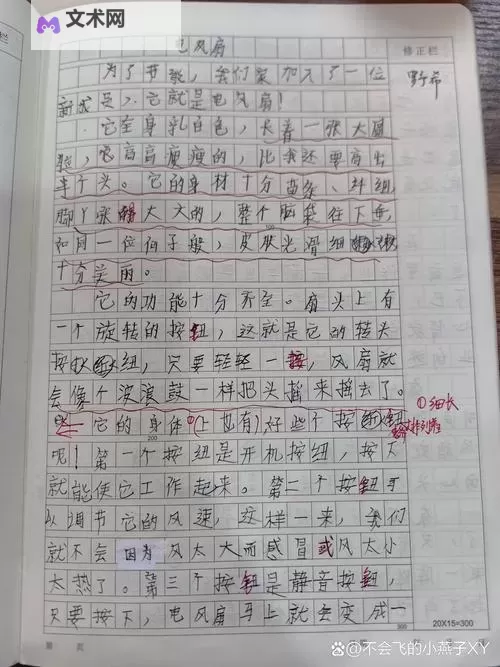 文术网
MENWUN.COM
电风扇
修正栏
为了节能，我们家加入了一位
野希
新成员，它就是电风扇！
它全身乳白色，长着一张大圆
脸，它高高瘦瘦的，比我还要高出
半个头。它的身材十分苗条、纤细，
脚丫张得大大的，整个脑袋往下垂，
如同一位 般，皮肤光滑细嫩
十分美丽。
100
它的功能十分齐全。扇头上有
一个旋转的按钮，这就是它的转头
按钮，只要轻轻一按，风扇就
会像个波浪鼓一样把头摇来摇去了。
①细长
它的身体(上也有)好些个按钮
排列着
200
呢！第一个按钮是开机按钮，按下
就能使它工作起来。第二个按钮可
以调节它的风速，这样一来，我们
就不会因为风太大而感冒或风太小
太热了。第三个按钮是静音按钮，
只要按下，电风扇马上就会变成一
300
20X15=300
第 页
@不会飞的小燕子XY